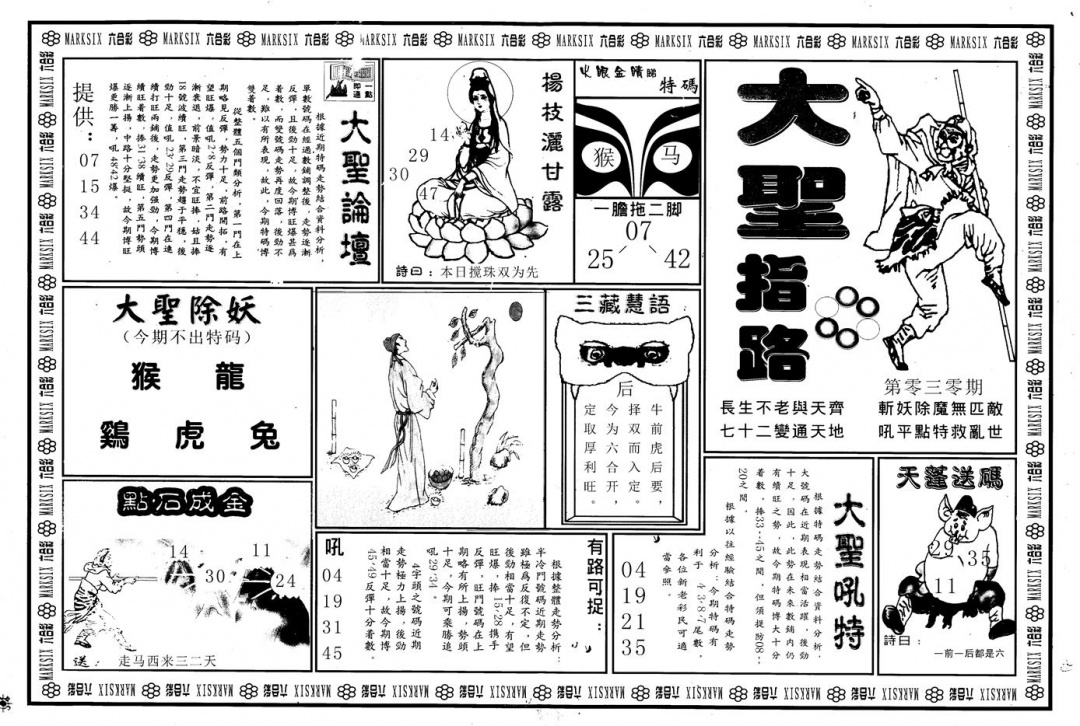 MARKSIX 六合彩 MARKSIX 六合彩 MARKSIX 六合彩 MARKSIX 六合彩 MARKSIX 六合彩 MARKSIX 六合彩 MARKSIX 六合彩 MARKSIX 六合彩 MARKSIX 六合彩 MARKSIX 六合彩
一點即通
大聖論壇
根據近期特碼走勢結合資料分析，
單數號碼在經過數鋪調整後，走勢逐漸
反彈，且後勁十足，故今期博旺爆甚爲
着數，而雙號碼走勢再度回落，後勁不
足，雖以有所表現，故此，今期特碼博
雙着數。
從整體五個門類分析，第一門在上
期略見反彈，勢力十足，前路開拓，有
望旺爆，值吼7·8反彈，第二門走勢逐
漸衰退，前景暗淡，不宜旺捧，姑且捧
18號波續旺，第三門走勢趨于平穩，後
勁十足，值吼23·29反彈，第四門在連
續打旺兩鋪後，走勢更加强勁，今期博
續旺着數，捧31·38續旺，第五門勢頭
逐漸上揚，中路十分堅挺，故今期博旺
爆更勝一籌，吼48·42爆。
提供：
07
15
34
44
楊枝灑甘露
14
29
30
47
詩曰：本日搅珠双为先
火眼金睛睇特碼
猴 马
一膽拖二脚
07
25 42
大聖指路
第零三零期
長生不老與天齊
七十二變通天地
斬妖除魔無匹敵
吼平點特救亂世
大聖除妖
（今期不出特码）
猴 龍
鷄 虎 兔
三藏慧語
后
牛前虎后要，
择双而入定。
今为六合开，
定取厚利旺。
點石成金
14
11
30
24
送：走马西来三二天
有路可捉：
根據整體走勢分析：
半冷門號碼近期走勢
雖極爲反復不定，但
後勁相當十足，有望
旺爆，捧15·28携手
反彈，旺門號碼在上
期略有所上揚，勢頭
十足，今期可乘勝追
吼29·34。
4字頭之號碼近期
走勢極力上揚，後勁
相當十足，故今期博
45·49反彈十分着數。
吼
04
19
31
45
大聖吼特
根據特碼走勢結合資料分析，
大號碼在近期表現相當活躍，後勁
十足，因此，此勢在未來數鋪内仍
有續旺之勢，故今期特碼博大十分
着數，捧33--45之間，但須提防08--
20之間。
根據以往經驗結合特碼走勢
分析：今期特碼有
利于4·3·8·7尾數。
各位新老彩民可適
當參照。
04
19
21
35
天蓬送碼
29
35
11
詩曰：
一前一后都是六